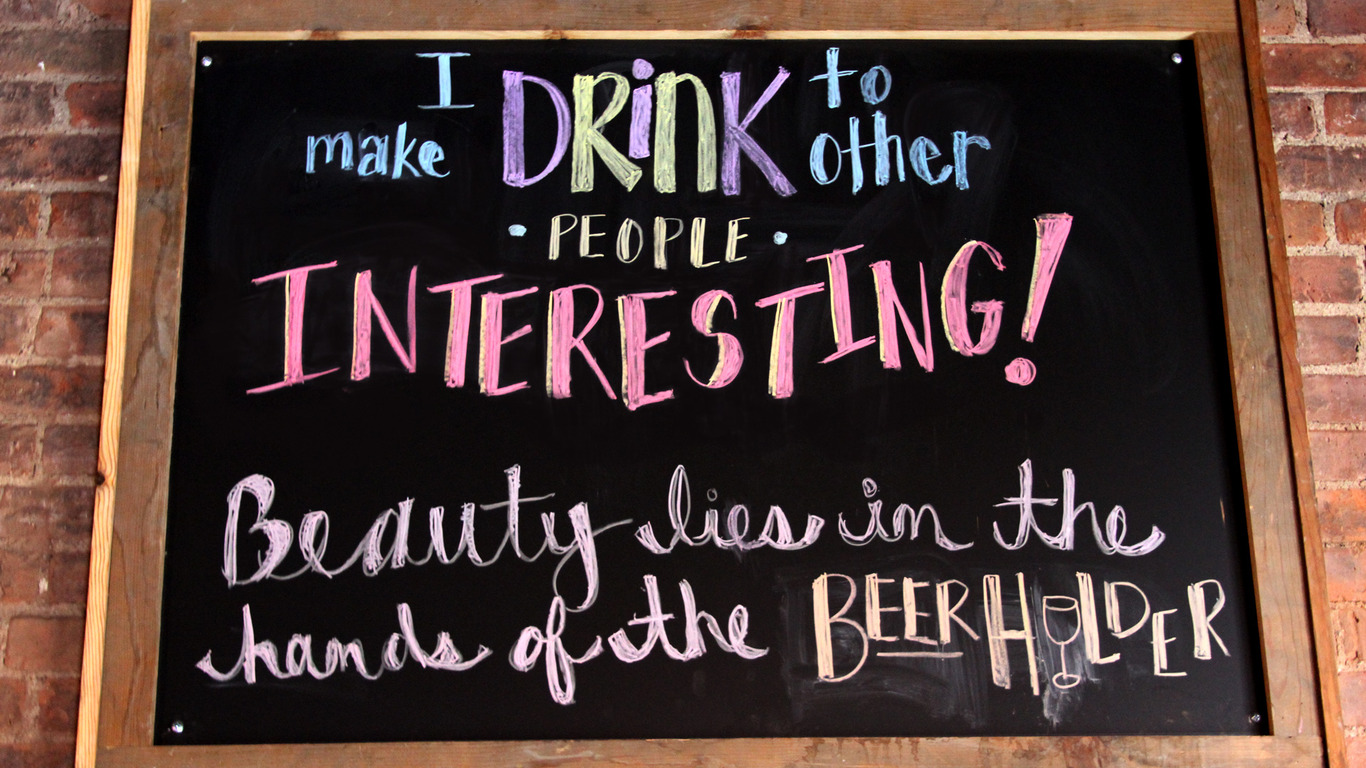 I DRiNK to
make other
• PEOPLE •
INTERESTING!
Beauty lies in the
hands of the BEERHOLDER